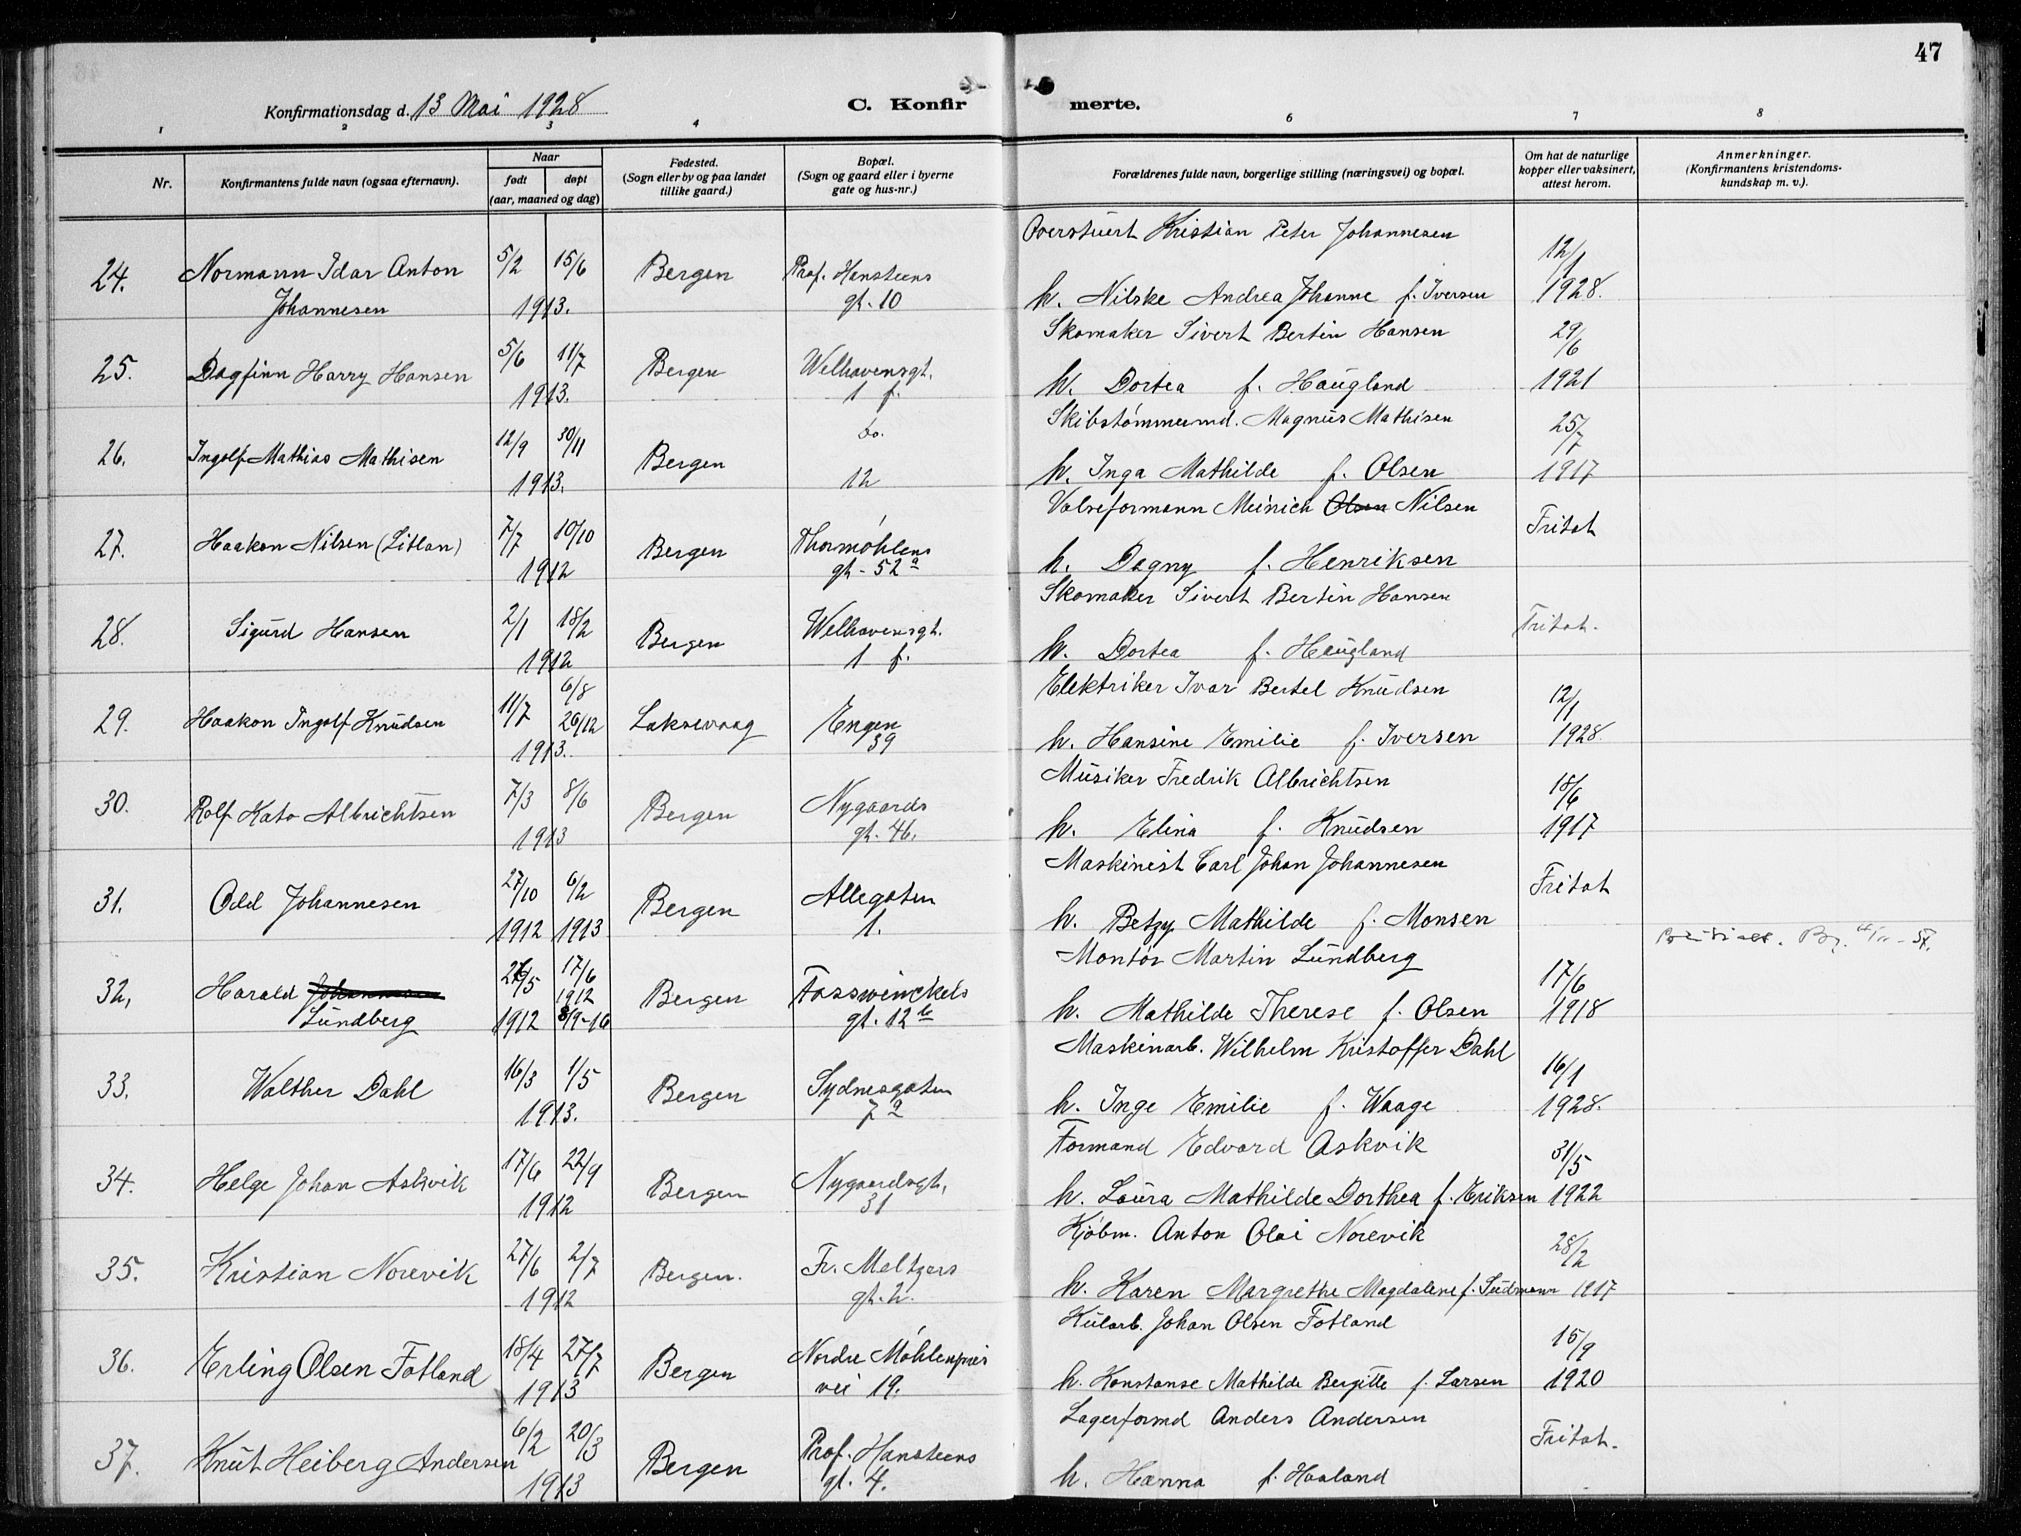 47
Konfirmationsdag d. 13 Mai 1928
C. Konfirmerte.
1 2 3 4 6 7 8
Nr.
Konfirmantens fulde navn (ogsaa efternavn).
Naar
født døpt
(aar, maaned og dag)
Fødested.
(Sogn eller by og paa landet
tillike gaard.)
Bopæl.
(Sogn og gaard eller i byerne
gate og hus-nr.)
Forældrenes fulde navn, borgerlige stilling (næringsvei) og bopæl.
Om hat de naturlige
kopper eller vaksinert,
attest herom.
Anmerkninger.
(Konfirmantens kristendoms-
kundskap m. v.).
Overstuert Kristian Peter Johannesen 12/1
24. Normann Idar Anton 5/2 15/6 Bergen Prof. Hansteens
Johannesen 1913. gt. 10 h. Nilske Andrea Johanne f. Iversen 1928.
Skomaker Sivert Bertin Hansen 29/6
25. Dagfinn Harry Hansen 5/6 11/7 Bergen Welhavensgt.
1913. 1 f. h. Dortea f. Haugland 1921
Skibstømmermd. Magnus Mathisen 25/7
26. Ingolf Mathias Mathisen 12/9 30/11 Bergen do.
1913. 12 h. Inga Mathilde f. Olsen 1917
Valseformann Meinich Olsen Nilsen Fritat
27. Haakon Nilsen (Litlan) 7/7 10/10 Bergen Thormøhlens
1912 gt. 52 a h. Dagny f. Henriksen
Skomaker Sivert Bertin Hansen
28. Sigurd Hansen 2/1 18/2 Bergen Welhavensgt. Fritat.
1912 1 f. h. Dortea f. Haugland
Elektriker Ivar Bertel Knudsen 12/1
29. Haakon Ingolf Knudsen 11/7 6/8 26/12 Laksevaag Engen
1913. 39 h. Hansine Emilie f. Iversen 1928
Musiker Fredrik Albrichtsen 18/6
30. Rolf Kato Albrichtsen 7/3 8/6 Bergen Nygaards
1913 gt. 46. h. Elina f. Knudsen 1917
Maskinist Carl Johan Johannesen Fritat
31. Odd Johannesen 27/10 6/2 Bergen Allegaten
1912 1913 1. h. Betzy Mathilde f. Monsen
Montør Martin Lundberg 17/6
32, Harald Johannesen 27/5 17/6 1912 Bergen Fosswinckels
Lundberg 1912 8/9-16 gt. 12 b h. Mathilde Therese f. Olsen 1918
Maskinarb. Wilhelm Kristoffer Dahl 16/1
33. Walther Dahl 16/3 1/5 Bergen Sydnesgaten
1913. 7 a h. Inge Emilie f. Waage 1928.
Formand Edvard Askvik 31/5
34. Helge Johan Askvik 17/6 22/9 Bergen Nygaardsgt.
1912 31 h. Laura Mathilde Dorthea f. Eriksen 1922
Kjøbm. Anton Olai Norevik 28/2
35. Kristian Norevik 27/6 2/7 Bergen. Fr. Meltzers
1912 gt. 2. h. Karen Margrethe Magdalene f. Sudmann 1917
Kularb. Johan Olsen Fotland 15/9
36. Erling Olsen Fotland 18/4 27/7 Bergen Nordre Møhlenpris
1913 vei 19. h. Konstanse Mathilde Bergitte f. Larsen 1920
Lagerformd Anders Andersen Fritat.
37. Knut Heiberg Andersen 6/2 20/3 Bergen Prof. Hansteens
1913 gt. 4. h. Hanna f. Haaland